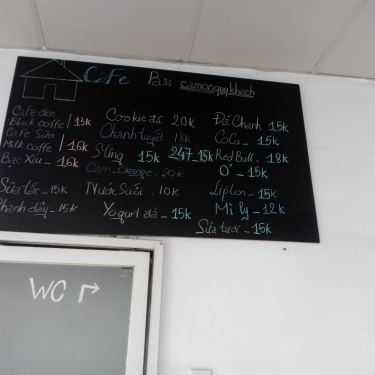 CaFe Pass: camonquykhach
Cafe đen
Black coffe / 15k
Cafe Sữa
Milk coffe / 16k
Bạc Xỉu - 16k
Sữa tắc - 15k
Chanh dây - 15k
Cookie đá 20k
Chanh tuyết 18k
Sting 15k
247 - 15k
Cam Orange - 20k
Nước Suối - 10k
Yogurt đá - 15k
Đá Chanh 15k
CoCa - 15k
Red Bull - 18k
O° - 15k
Lipton - 15k
Mì ly - 12k
Sữa tươi - 15k
WC